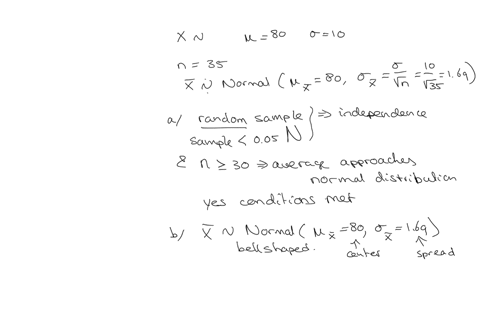 X ~ μ = 80 σ = 10
n = 35
X̄ ~̇ Normal ( μ_x̄ = 80, σ_x̄ = σ/√n = 10/√35 = 1.69 )
a/ random sample } ⇒ independence
sample < 0.05 N
& n ≥ 30 ⇒ average approaches
normal distribution
yes conditions met
b/ X̄ ~ Normal ( μ_x̄ = 80, σ_x̄ = 1.69 )
bell shaped. ↑ center ↑ spread